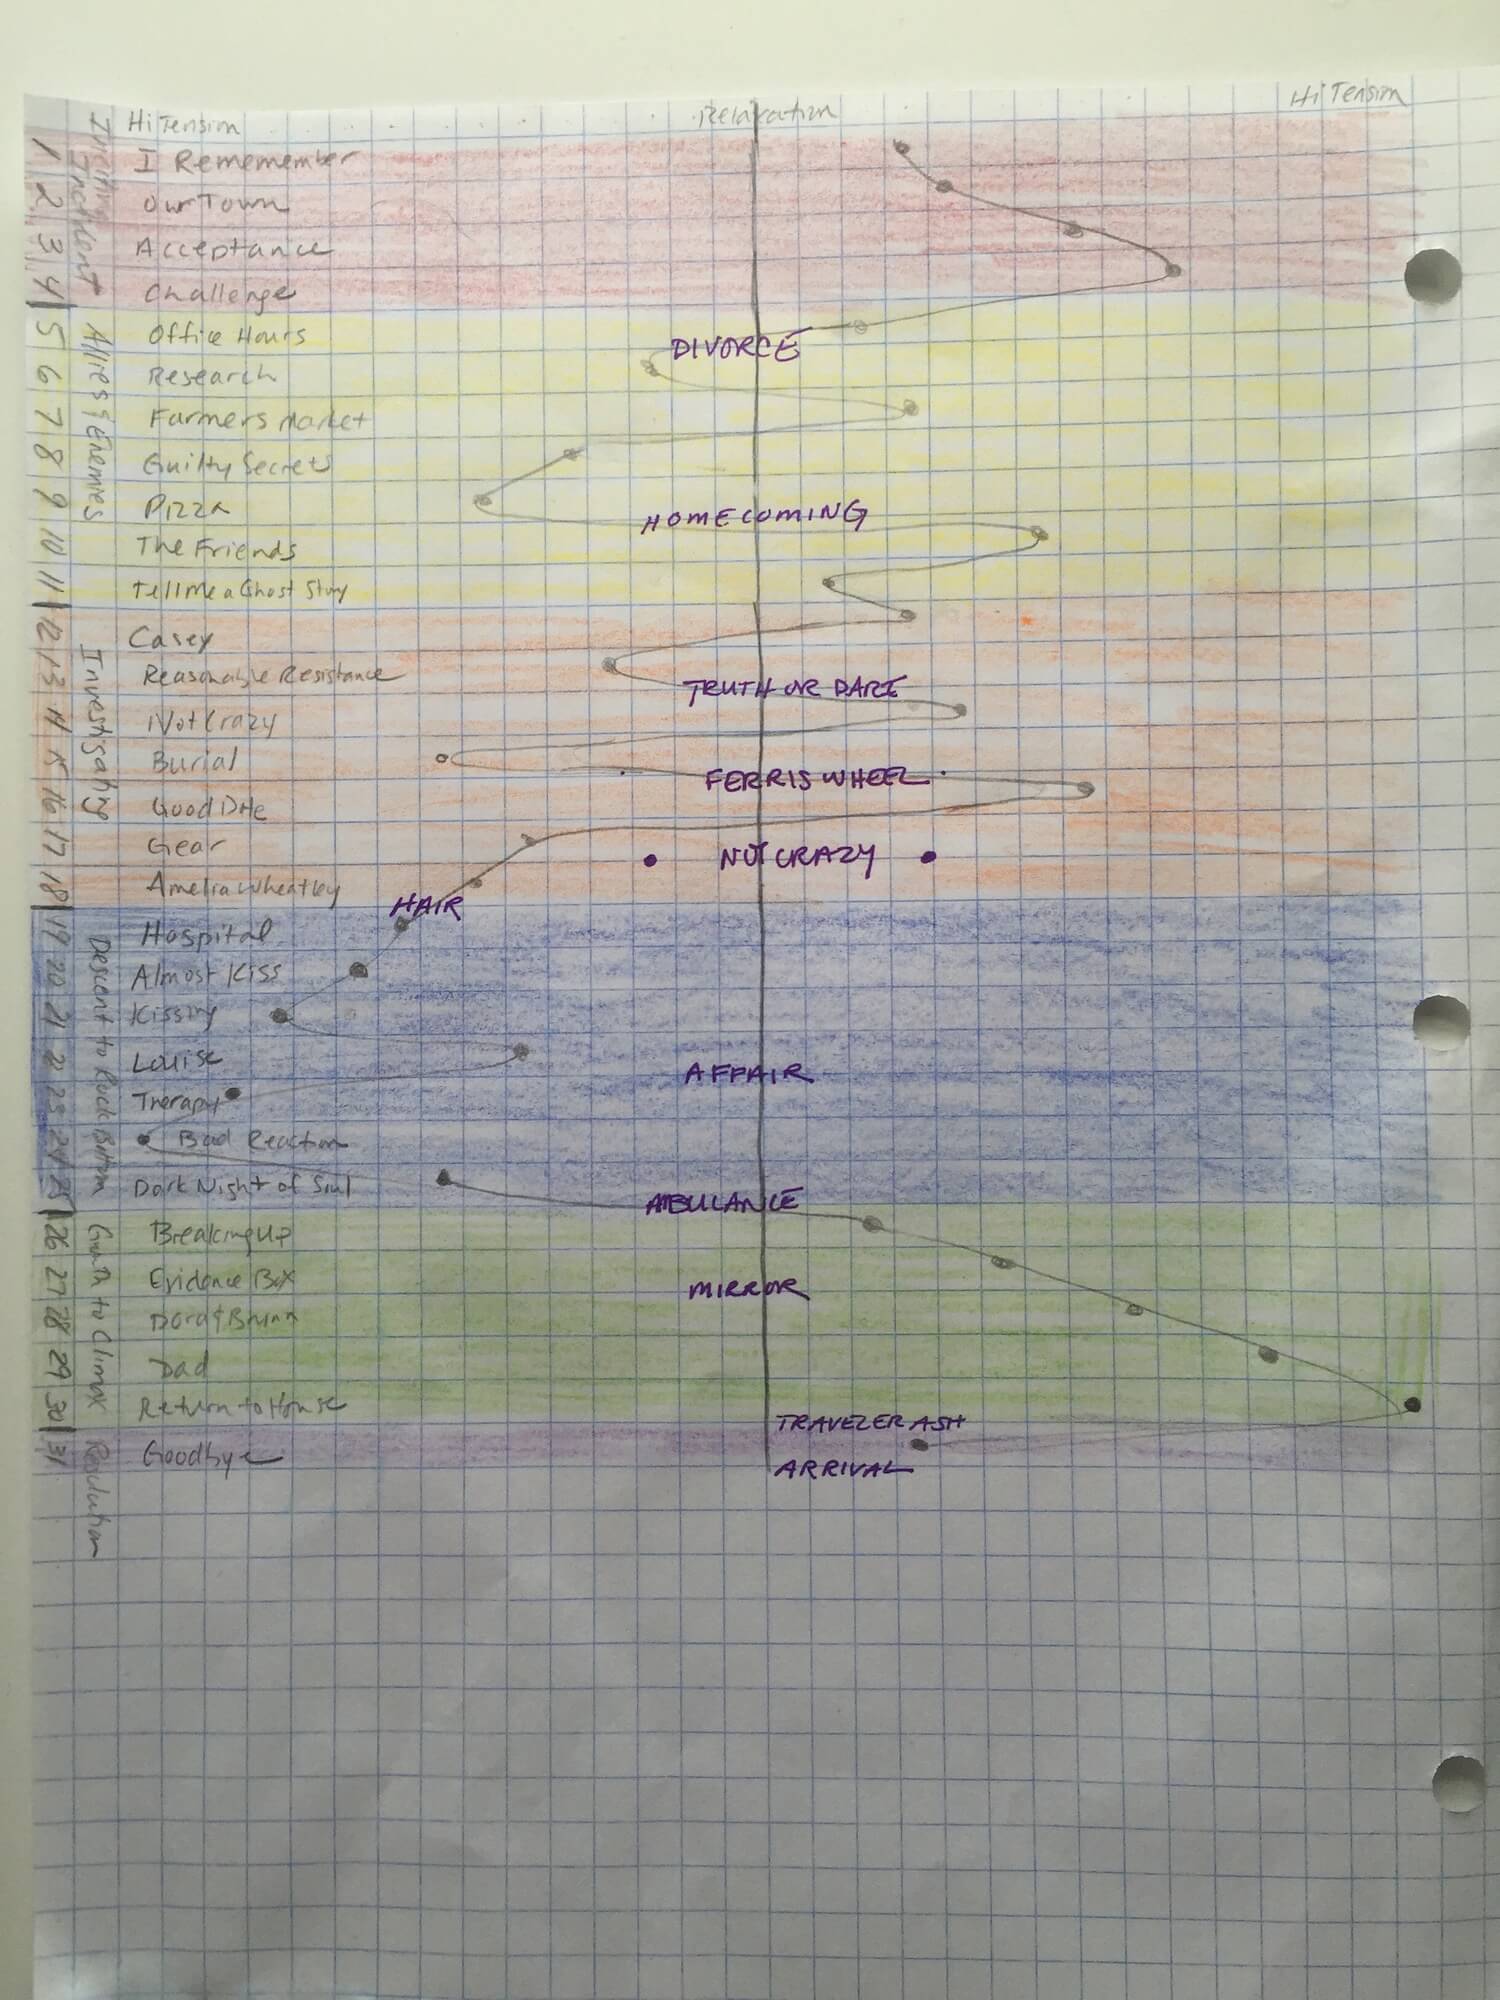 Hi Tension Relaxation Hi Tension
Inciting Incident
1 I Rememember
2 Our Town
3 Acceptance
4 Challenge
Allies & Enemies
5 Office Hours
DIVORCE
6 Research
7 Farmers Market
8 Guilty Secrets
9 Pizza
HOMECOMING
10 The Friends
11 Tell me a Ghost Story
Investigating
12 Casey
13 Reasonable Resistance
TRUTH OR DARE
14 Not Crazy
15 Burial
FERRIS WHEEL
16 Good
17 Gear
NOT CRAZY
18 Amelia Wheatley
HAIR
Descent to Rock Bottom
19 Hospital
20 Almost Kiss
21 Kissing
22 Louise
AFFAIR
23 Therapy
24 Bad Reaction
25 Dark Night of Soul
AMBULANCE
Growth to Climax
26 Breaking up
27 Evidence Box
MIRROR
28 Dora &
29 Dad
30 Return to House
TRAVELER ASH
Resolution
31 Goodbye
ARRIVAL